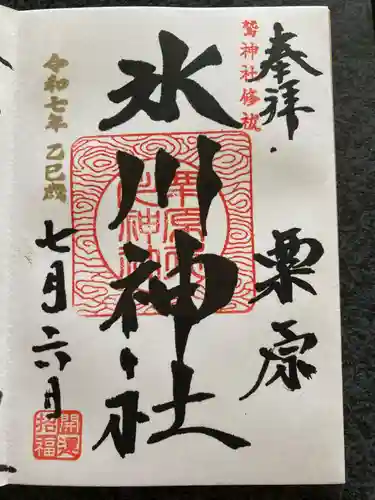 奉拝
栗原
鷲神社修祓
氷川神社
令和七年 乙巳歳
七月六日
開運
招福